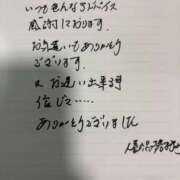 いつもそんなアドバイス
感謝しております。
お気遣いもありがとう
ございます。
又お逢い出来る事
信じて……
ありがとうございました